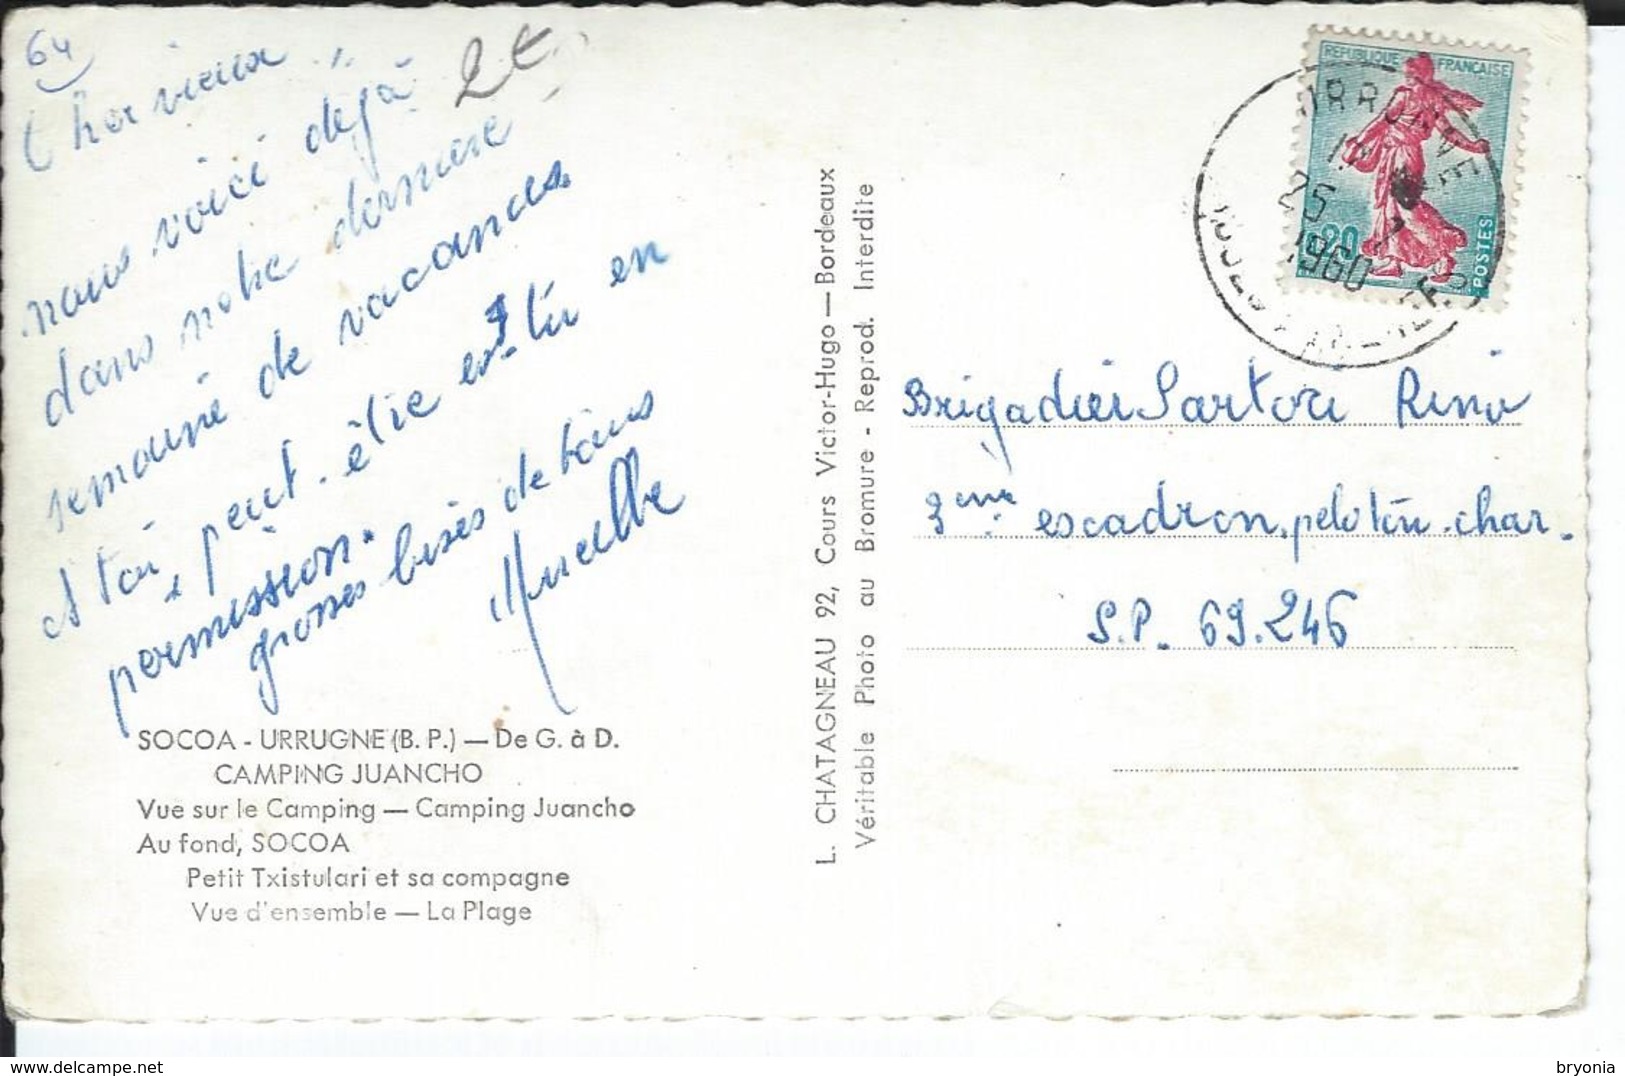 64
2€
Cher vieux,
nous voici déjà
dans notre dernière
semaine de vacances
et toi, peut-être es-tu en
permission.
grosses bises de tous
SOCOA - URRUGNE (B. P.) — De G. à D.
CAMPING JUANCHO
Vue sur le Camping — Camping Juancho
Au fond, SOCOA
Petit Txistulari et sa compagne
Vue d'ensemble — La Plage
L. CHATAGNEAU 92, Cours Victor-Hugo — Bordeaux
Véritable Photo au Bromure - Reprod. Interdite
REPUBLIQUE FRANÇAISE
0,20
POSTES
URRUGNE
25 7
1960
Brigadier Sartori Rino
3ème escadron, peloton-char.
S.P. 69.246
bryonia